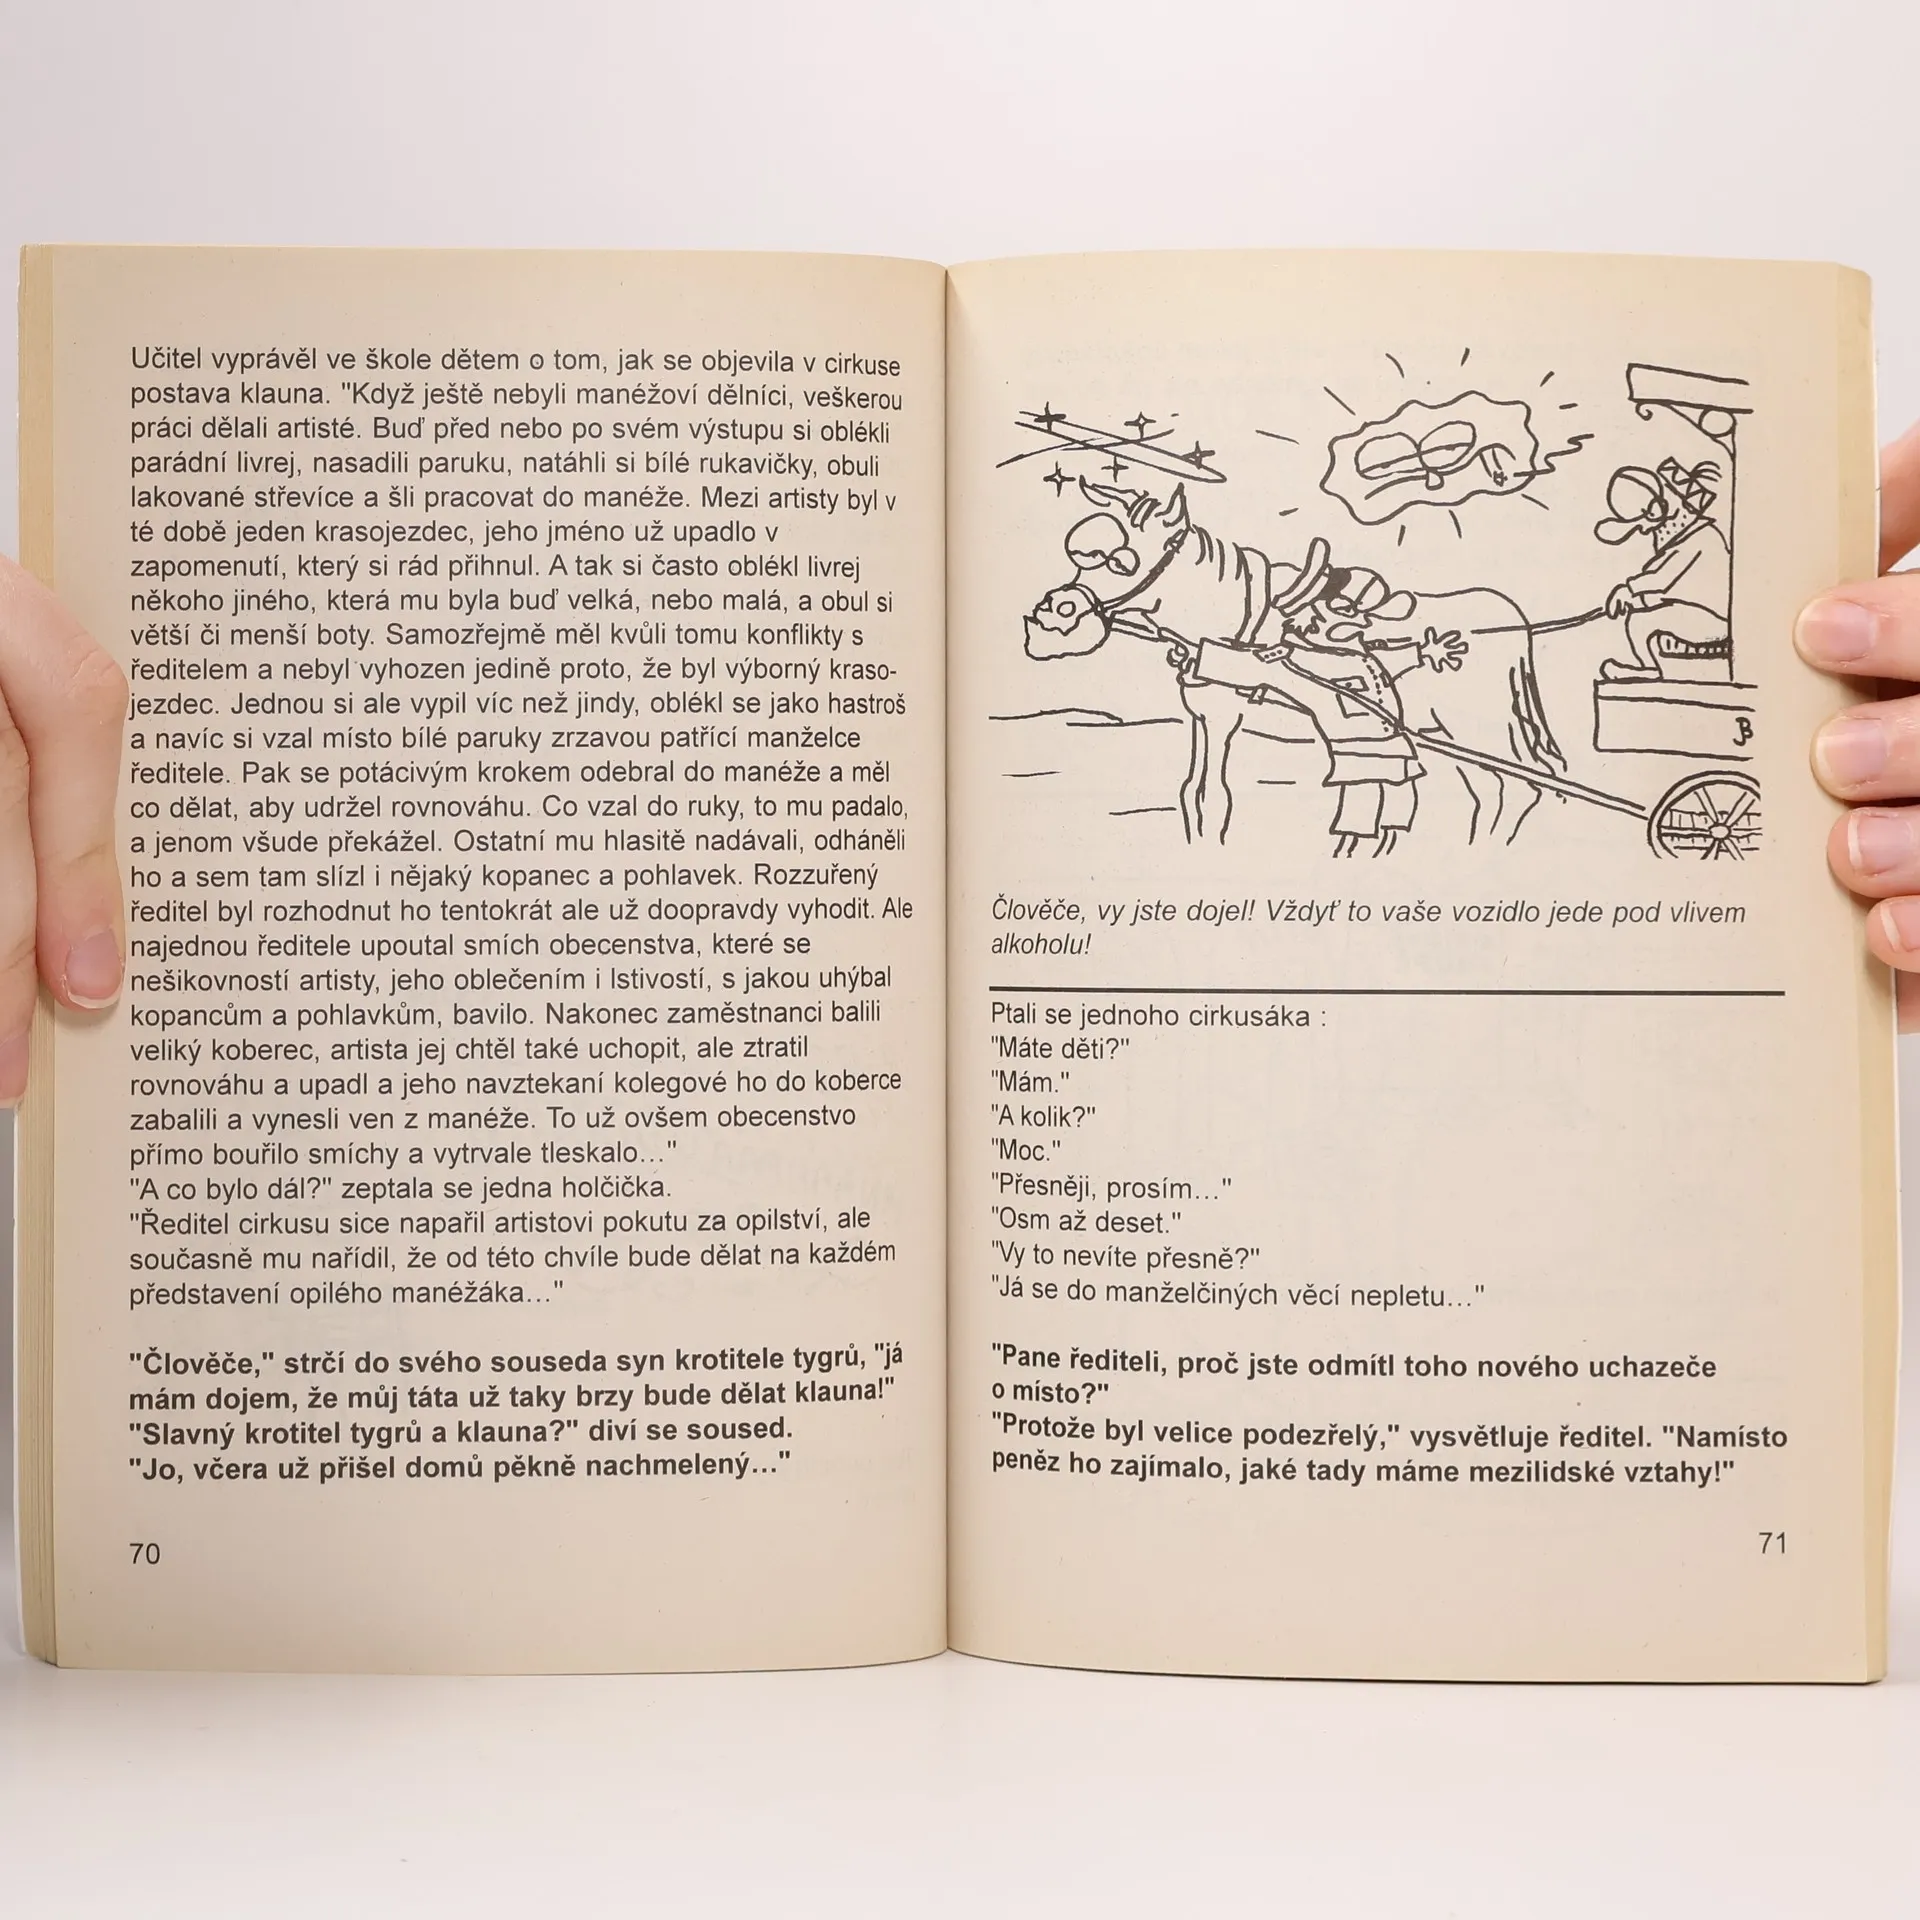 Učitel vyprávěl ve škole dětem o tom, jak se objevila v cirkuse
postava klauna. "Když ještě nebyli manéžoví dělníci, veškerou
práci dělali artisté. Buď před nebo po svém výstupu si oblékli
parádní livrej, nasadili paruku, natáhli si bílé rukavičky, obuli
lakované střevíce a šli pracovat do manéže. Mezi artisty byl v
té době jeden krasojezdec, jeho jméno už upadlo v
zapomenutí, který si rád přihnul. A tak si často oblékl livrej
někoho jiného, která mu byla buď velká, nebo malá, a obul si
větší či menší boty. Samozřejmě měl kvůli tomu konflikty s
ředitelem a nebyl vyhozen jedině proto, že byl výborný kraso-
jezdec. Jednou si ale vypil víc než jindy, oblékl se jako hastroš
a navíc si vzal místo bílé paruky zrzavou patřící manželce
ředitele. Pak se potácivým krokem odebral do manéže a měl
co dělat, aby udržel rovnováhu. Co vzal do ruky, to mu padalo,
a jenom všude překážel. Ostatní mu hlasitě nadávali, odháněli
ho a sem tam slízl i nějaký kopanec a pohlavek. Rozzuřený
ředitel byl rozhodnut ho tentokrát ale už doopravdy vyhodit. Ale
najednou ředitele upoutal smích obecenstva, které se
nešikovností artisty, jeho oblečením i lstivostí, s jakou uhýbal
kopancům a pohlavkům, bavilo. Nakonec zaměstnanci balili
veliký koberec, artista jej chtěl také uchopit, ale ztratil
rovnováhu a upadl a jeho navztekaní kolegové ho do koberce
zabalili a vynesli ven z manéže. To už ovšem obecenstvo
přímo bouřilo smíchy a vytrvale tleskalo..."
"A co bylo dál?" zeptala se jedna holčička.
"Ředitel cirkusu sice napařil artistovi pokutu za opilství, ale
současně mu nařídil, že od této chvíle bude dělat na každém
představení opilého manéžáka..."
"Člověče," strčí do svého souseda syn krotitele tygrů, "já
mám dojem, že můj táta už taky brzy bude dělat klauna!"
"Slavný krotitel tygrů a klauna?" diví se soused.
"Jo, včera už přišel domů pěkně nachmelený..."
70
Člověče, vy jste dojel! Vždyť to vaše vozidlo jede pod vlivem
alkoholu!
Ptali se jednoho cirkusáka :
"Máte děti?"
"Mám."
"A kolik?"
"Moc."
"Přesněji, prosím..."
"Osm až deset."
"Vy to nevíte přesně?"
"Já se do manželčiných věcí nepletu..."
"Pane řediteli, proč jste odmítl toho nového uchazeče
o místo?"
"Protože byl velice podezřelý," vysvětluje ředitel. "Namísto
peněz ho zajímalo, jaké tady máme mezilidské vztahy!"
71